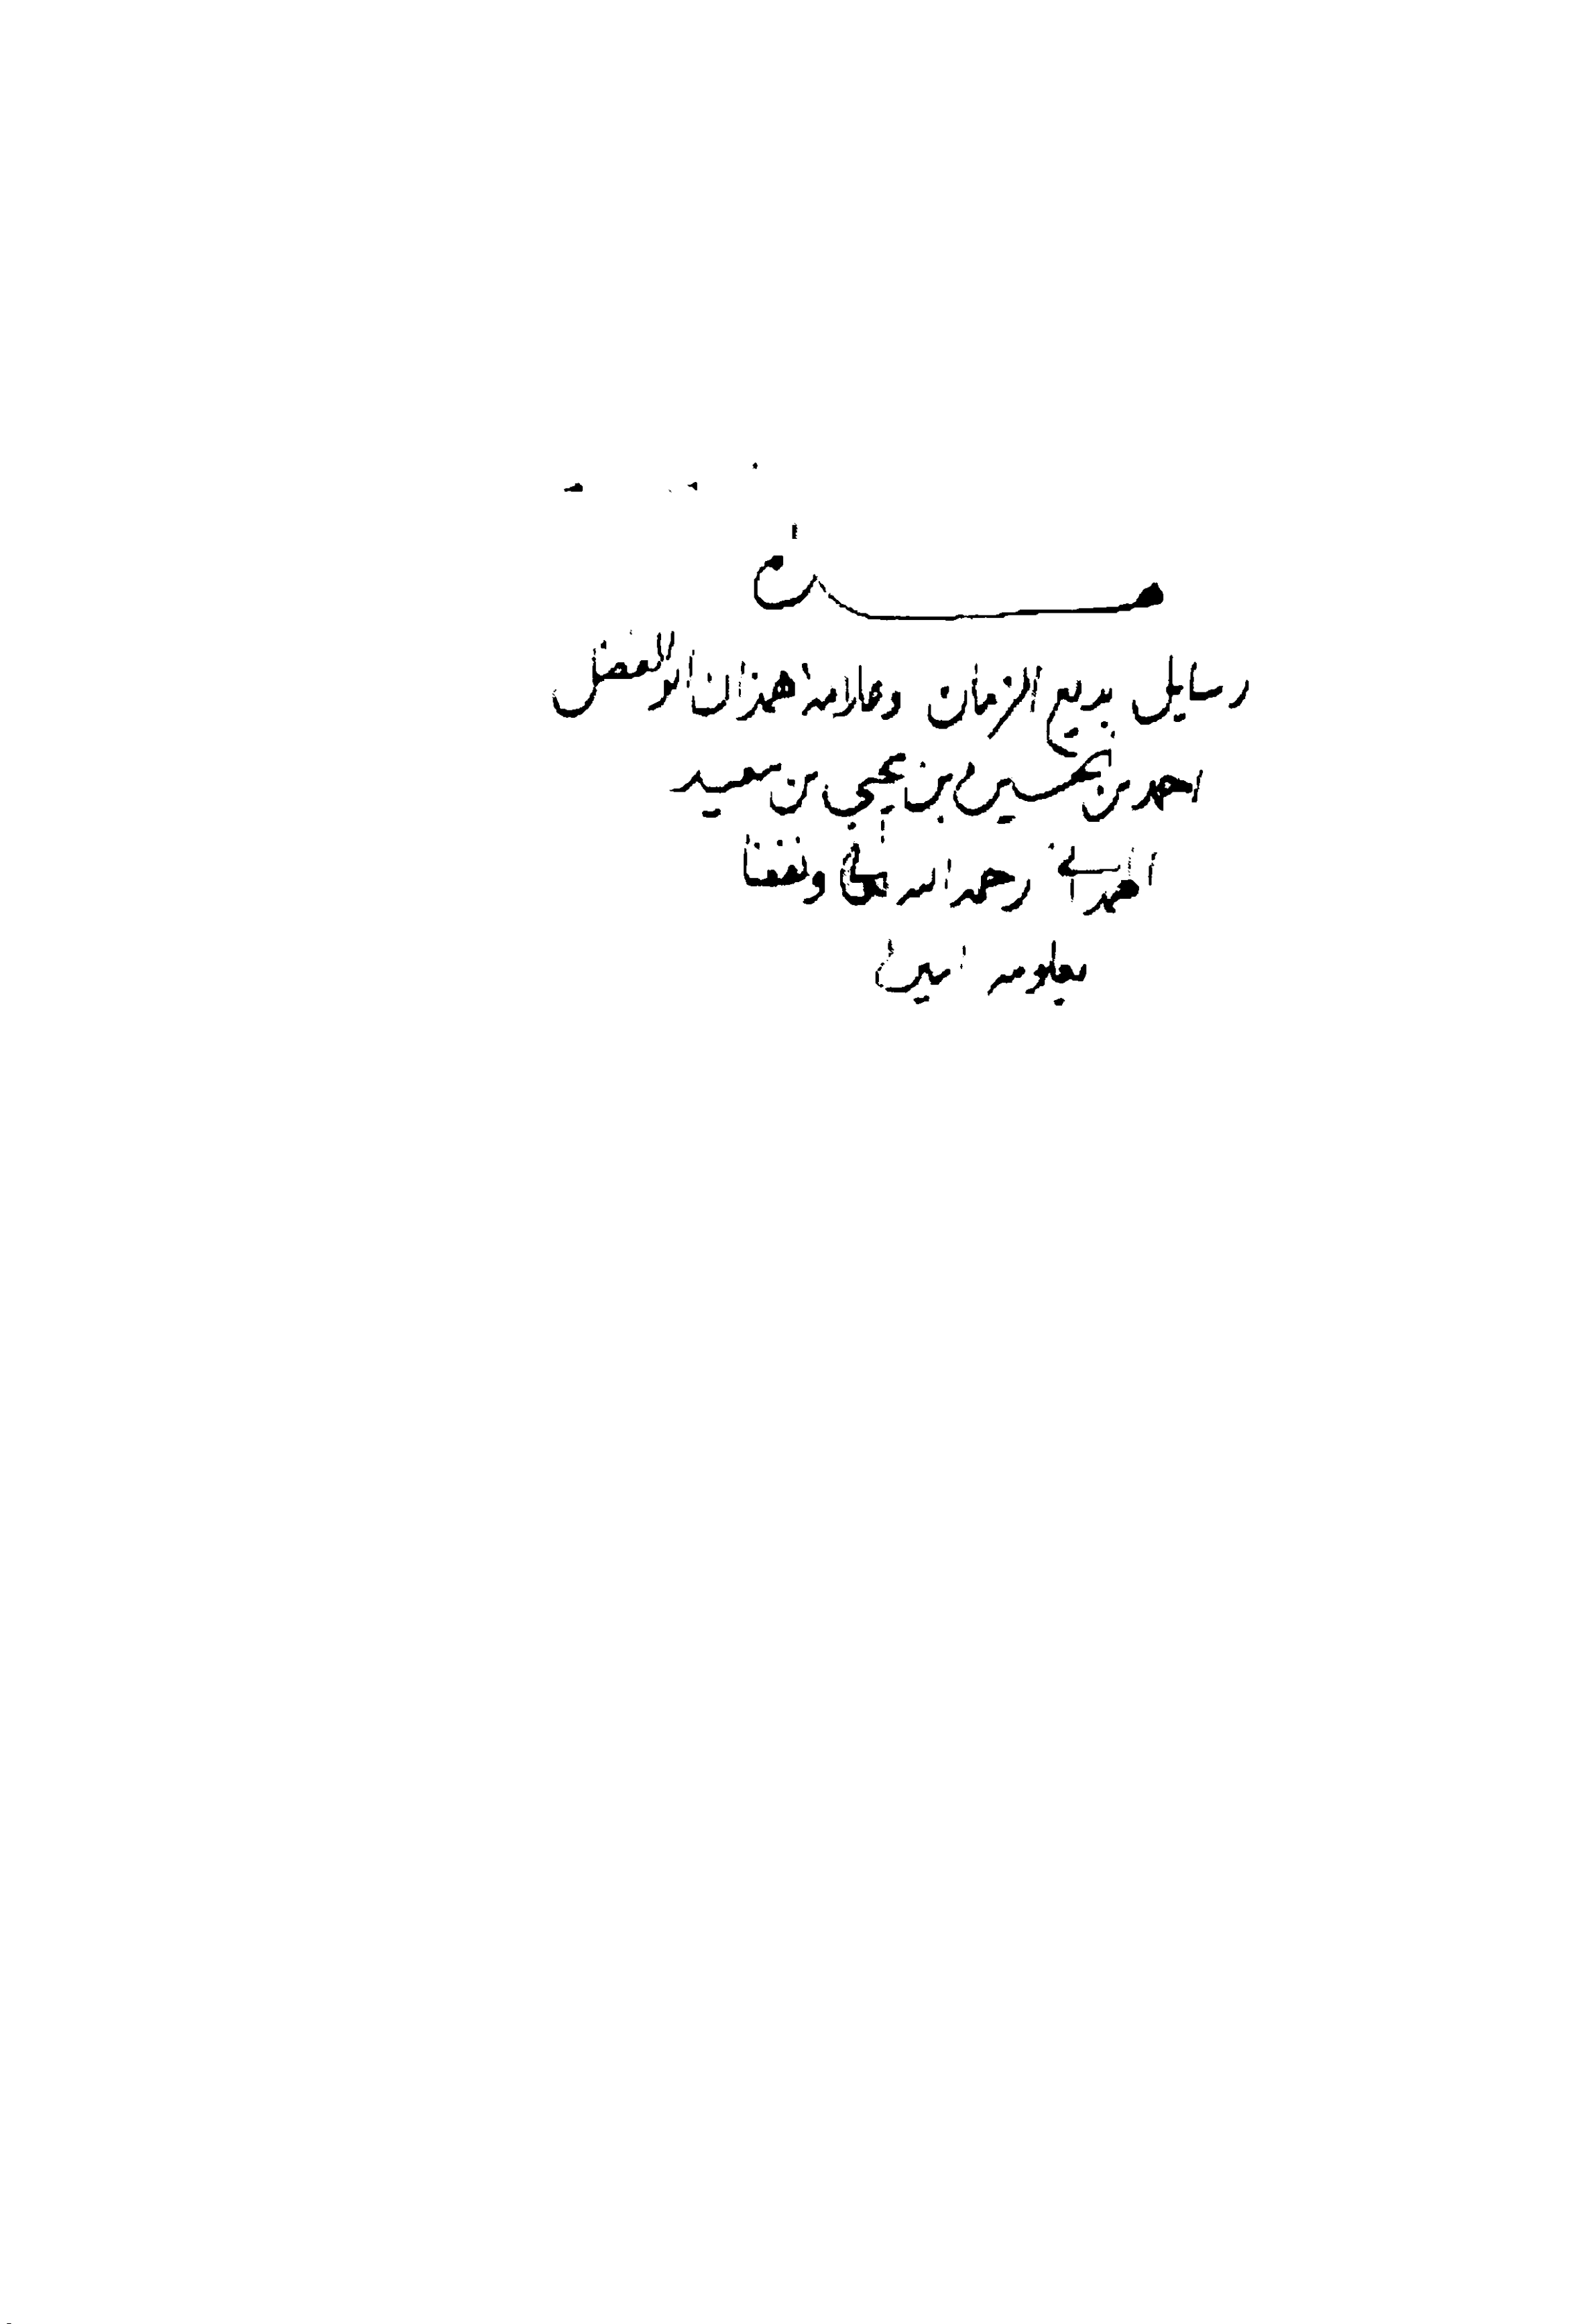 رسايل بديع الزمان وعلامة همذان ابو الفضل
احمد بن الحسين بن يحيى بن سعيد
الهمذاني رحمه الله تعالى ونفعنا
بعلومه امين